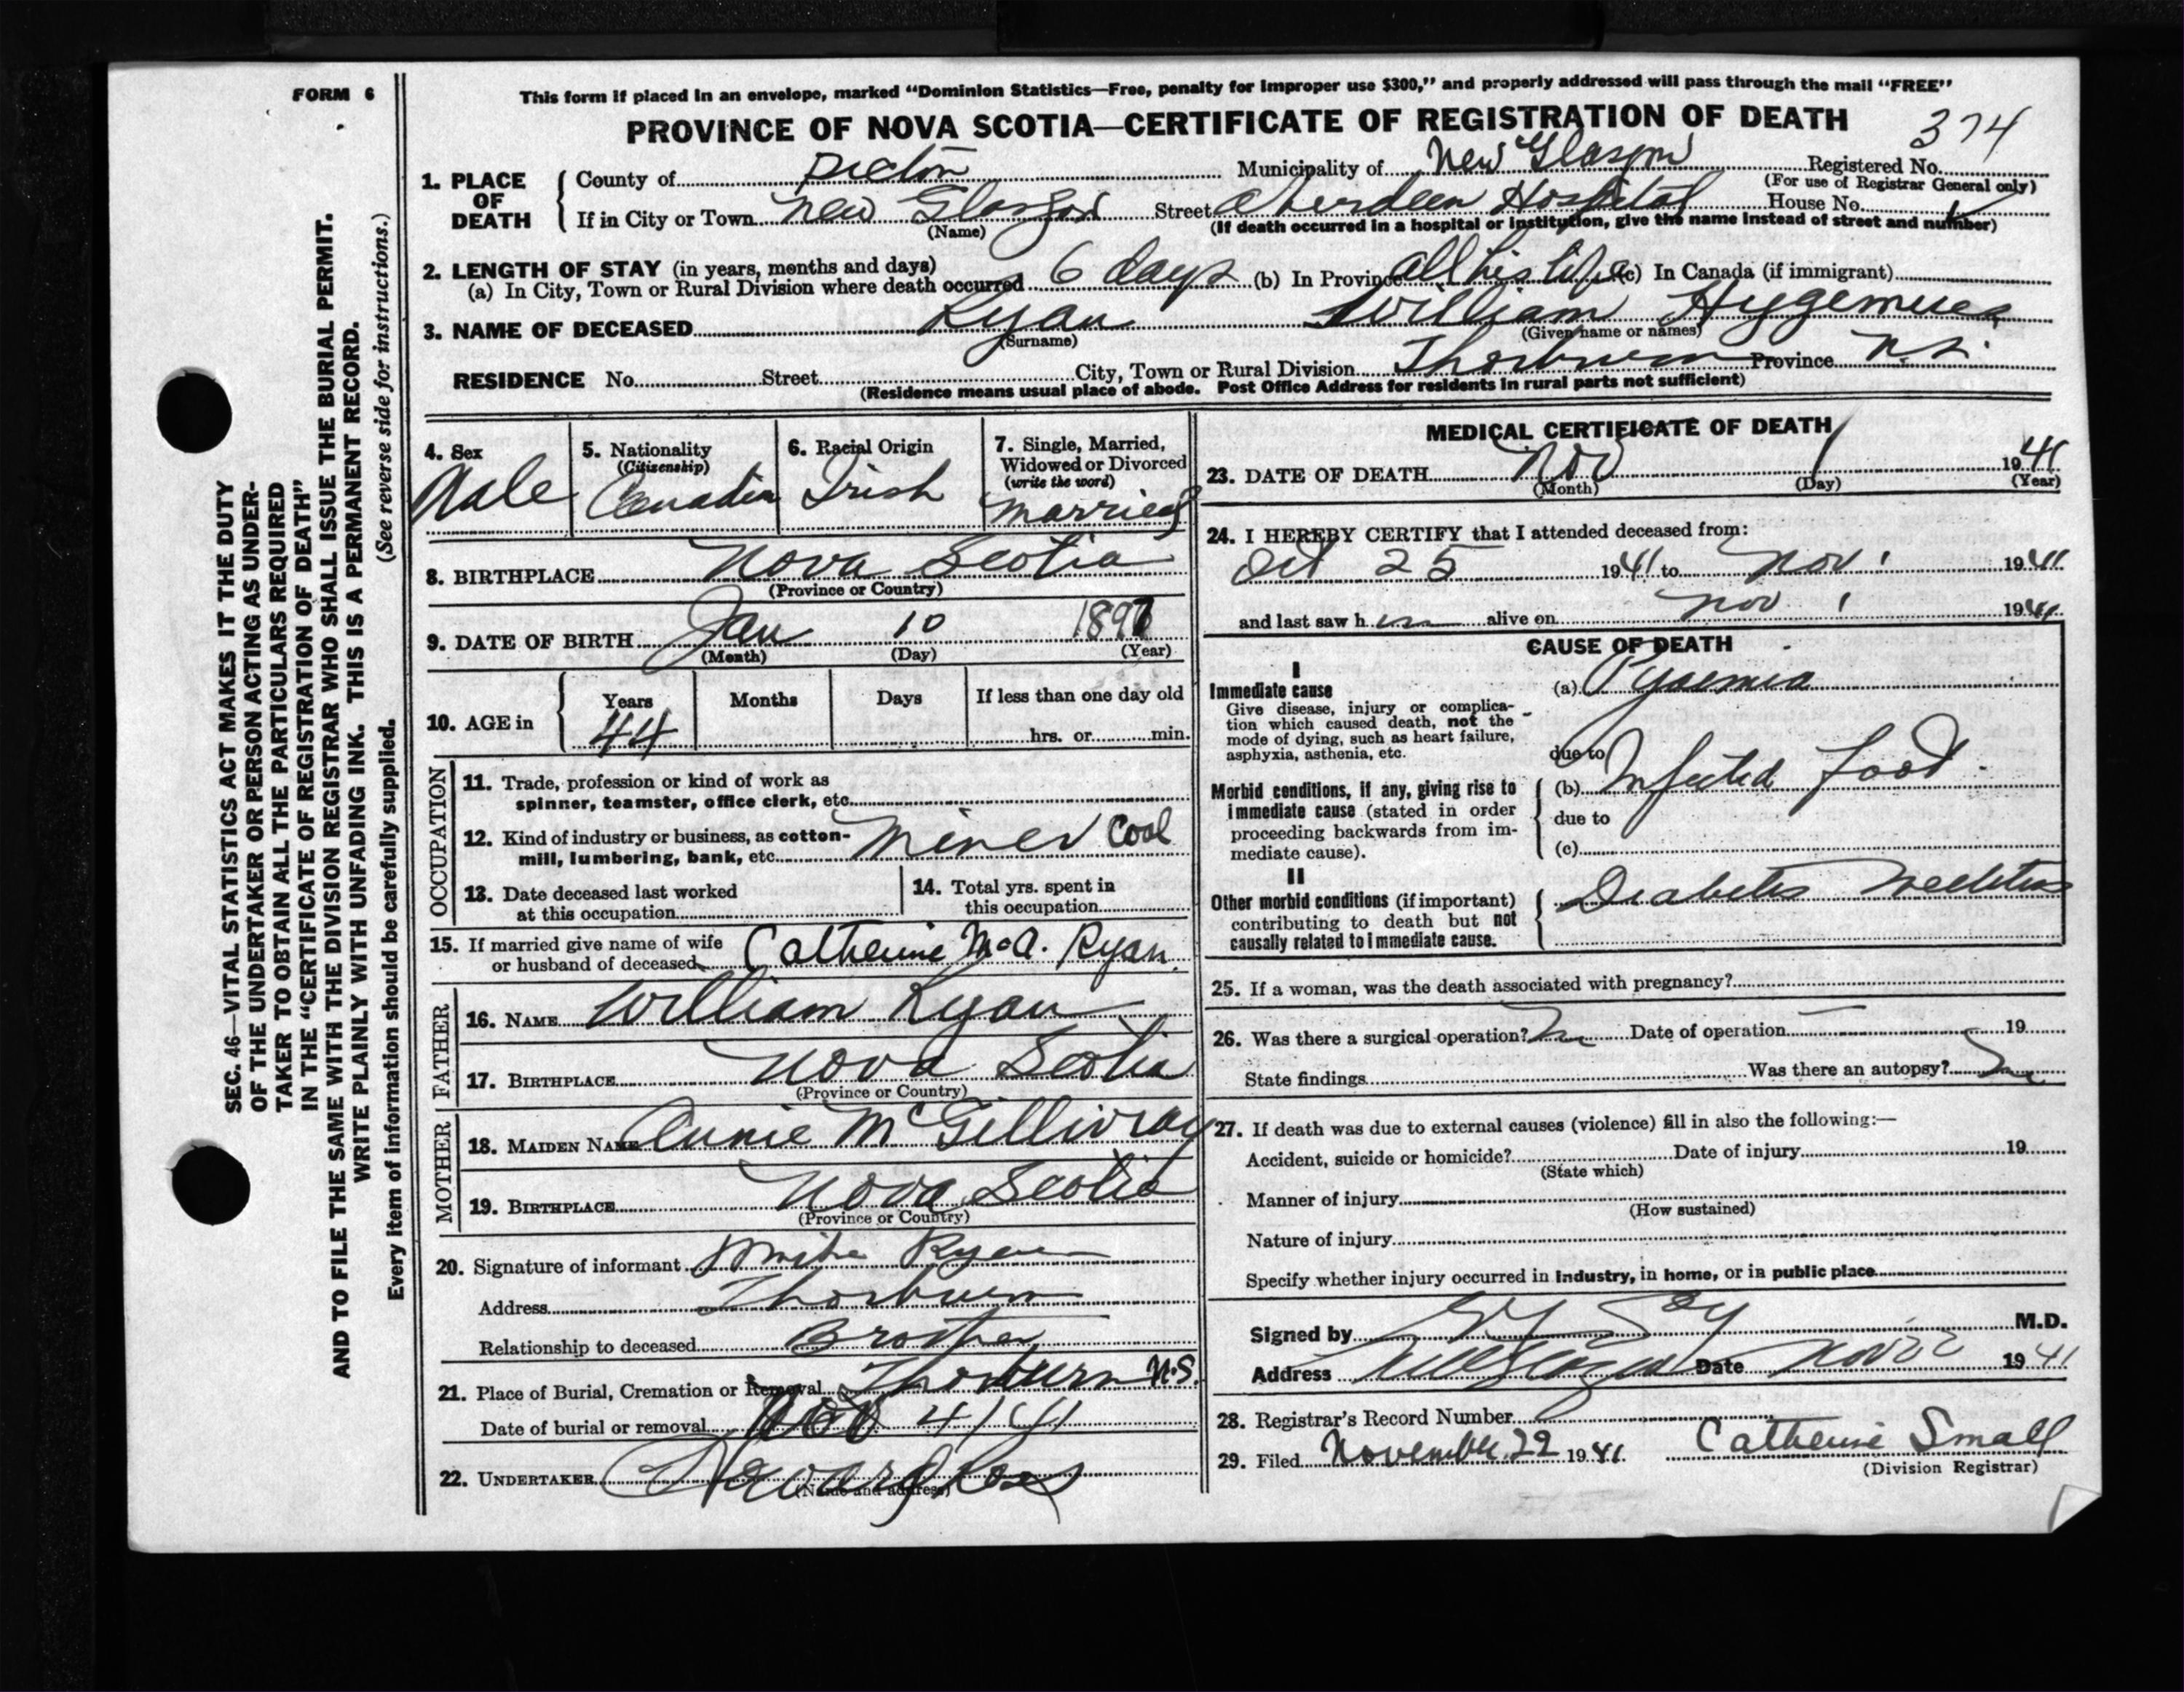 FORM 6
This form if placed in an envelope, marked "Dominion Statistics—Free, penalty for improper use $300," and properly addressed will pass through the mail "FREE"
PROVINCE OF NOVA SCOTIA—CERTIFICATE OF REGISTRATION OF DEATH
374
1. PLACE OF DEATH County of Pictou Municipality of New Glasgow Registered No.
(For use of Registrar General only)
If in City or Town New Glasgow Street Aberdeen Hospital House No.
(Name) (If death occurred in a hospital or institution, give the name instead of street and number)
2. LENGTH OF STAY (in years, months and days)
(a) In City, Town or Rural Division where death occurred 6 days (b) In Province all his life (c) In Canada (if immigrant)
3. NAME OF DECEASED Ryan William
(Surname) (Given name or names)
RESIDENCE No. Street City, Town or Rural Division Thorburn Province N.S.
(Residence means usual place of abode. Post Office Address for residents in rural parts not sufficient)
4. Sex
Male
5. Nationality
(Citizenship)
Canadian
6. Racial Origin
Irish
7. Single, Married,
Widowed or Divorced
(write the word)
Married
8. BIRTHPLACE Nova Scotia
(Province or Country)
9. DATE OF BIRTH Jan 10 1897
(Month) (Day) (Year)
10. AGE in Years Months Days If less than one day old
44 hrs. or min.
OCCUPATION
11. Trade, profession or kind of work as
spinner, teamster, office clerk, etc.
12. Kind of industry or business, as cotton-
mill, lumbering, bank, etc. Miner Coal
13. Date deceased last worked
at this occupation
14. Total yrs. spent in
this occupation
15. If married give name of wife
or husband of deceased Catherine McA. Ryan
FATHER
16. NAME William Ryan
17. BIRTHPLACE Nova Scotia
(Province or Country)
MOTHER
18. MAIDEN NAME Annie McGillivray
19. BIRTHPLACE Nova Scotia
(Province or Country)
20. Signature of informant Mike Ryan
Address Thorburn
Relationship to deceased Brother
21. Place of Burial, Cremation or Removal Thorburn N.S.
Date of burial or removal Nov 4/41
22. UNDERTAKER
(Name and address)
MEDICAL CERTIFICATE OF DEATH
23. DATE OF DEATH Nov 1 1941
(Month) (Day) (Year)
24. I HEREBY CERTIFY that I attended deceased from:
Oct 25 1941 to Nov 1 1941
and last saw him alive on Nov 1 1941
CAUSE OF DEATH
I
Immediate cause
Give disease, injury or complica-
tion which caused death, not the
mode of dying, such as heart failure,
asphyxia, asthenia, etc.
(a) Pyaemia
due to
Morbid conditions, if any, giving rise to
immediate cause (stated in order
proceeding backwards from im-
mediate cause).
(b) Infected foot.
due to
(c)
II
Other morbid conditions (if important)
contributing to death but not
causally related to immediate cause.
Diabetes Mellitus
25. If a woman, was the death associated with pregnancy?
26. Was there a surgical operation? No Date of operation — 19
State findings Was there an autopsy? No
27. If death was due to external causes (violence) fill in also the following:—
Accident, suicide or homicide? Date of injury 19
(State which)
Manner of injury
(How sustained)
Nature of injury
Specify whether injury occurred in industry, in home, or in public place
Signed by M.D.
Address New Glasgow Date Nov 22 1941
28. Registrar's Record Number
29. Filed November 29 1941. Catherine Small
(Division Registrar)
SEC. 46—VITAL STATISTICS ACT MAKES IT THE DUTY
OF THE UNDERTAKER OR PERSON ACTING AS UNDER-
TAKER TO OBTAIN ALL THE PARTICULARS REQUIRED
IN THE "CERTIFICATE OF REGISTRATION OF DEATH"
AND TO FILE THE SAME WITH THE DIVISION REGISTRAR WHO SHALL ISSUE THE BURIAL PERMIT.
WRITE PLAINLY WITH UNFADING INK. THIS IS A PERMANENT RECORD.
Every item of information should be carefully supplied. (See reverse side for instructions.)